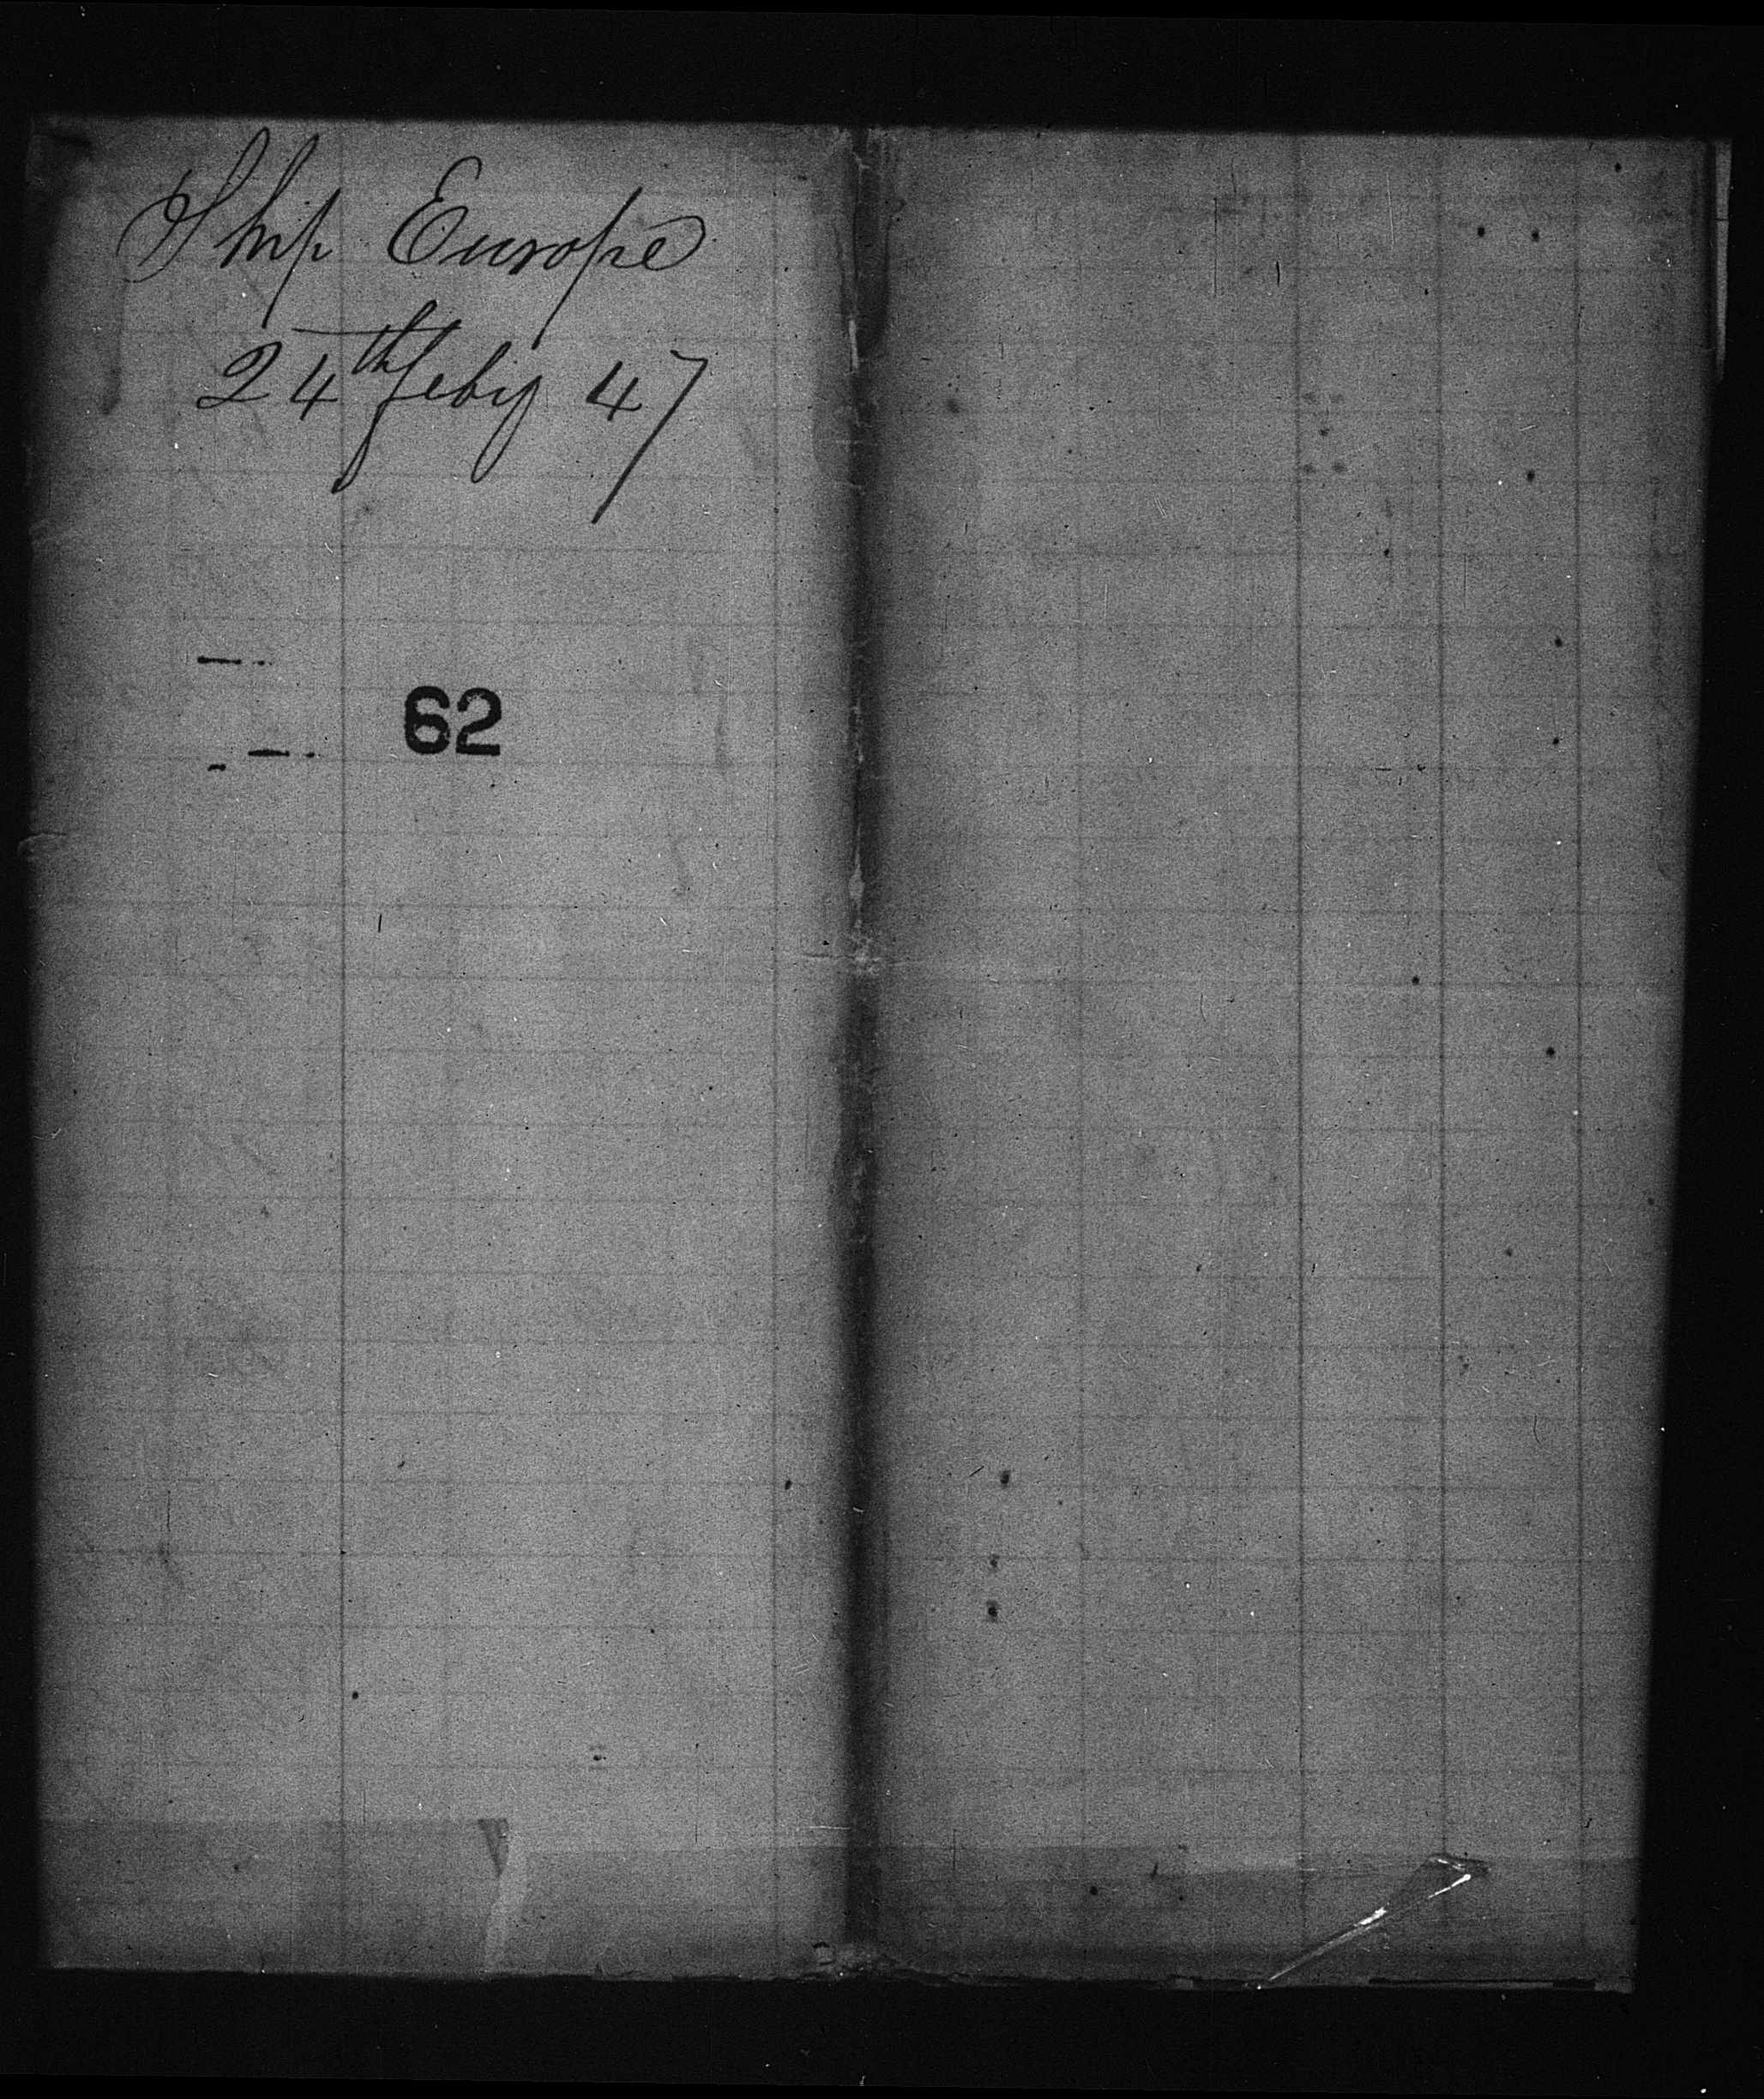 Ship Europe
24th feby 47
62